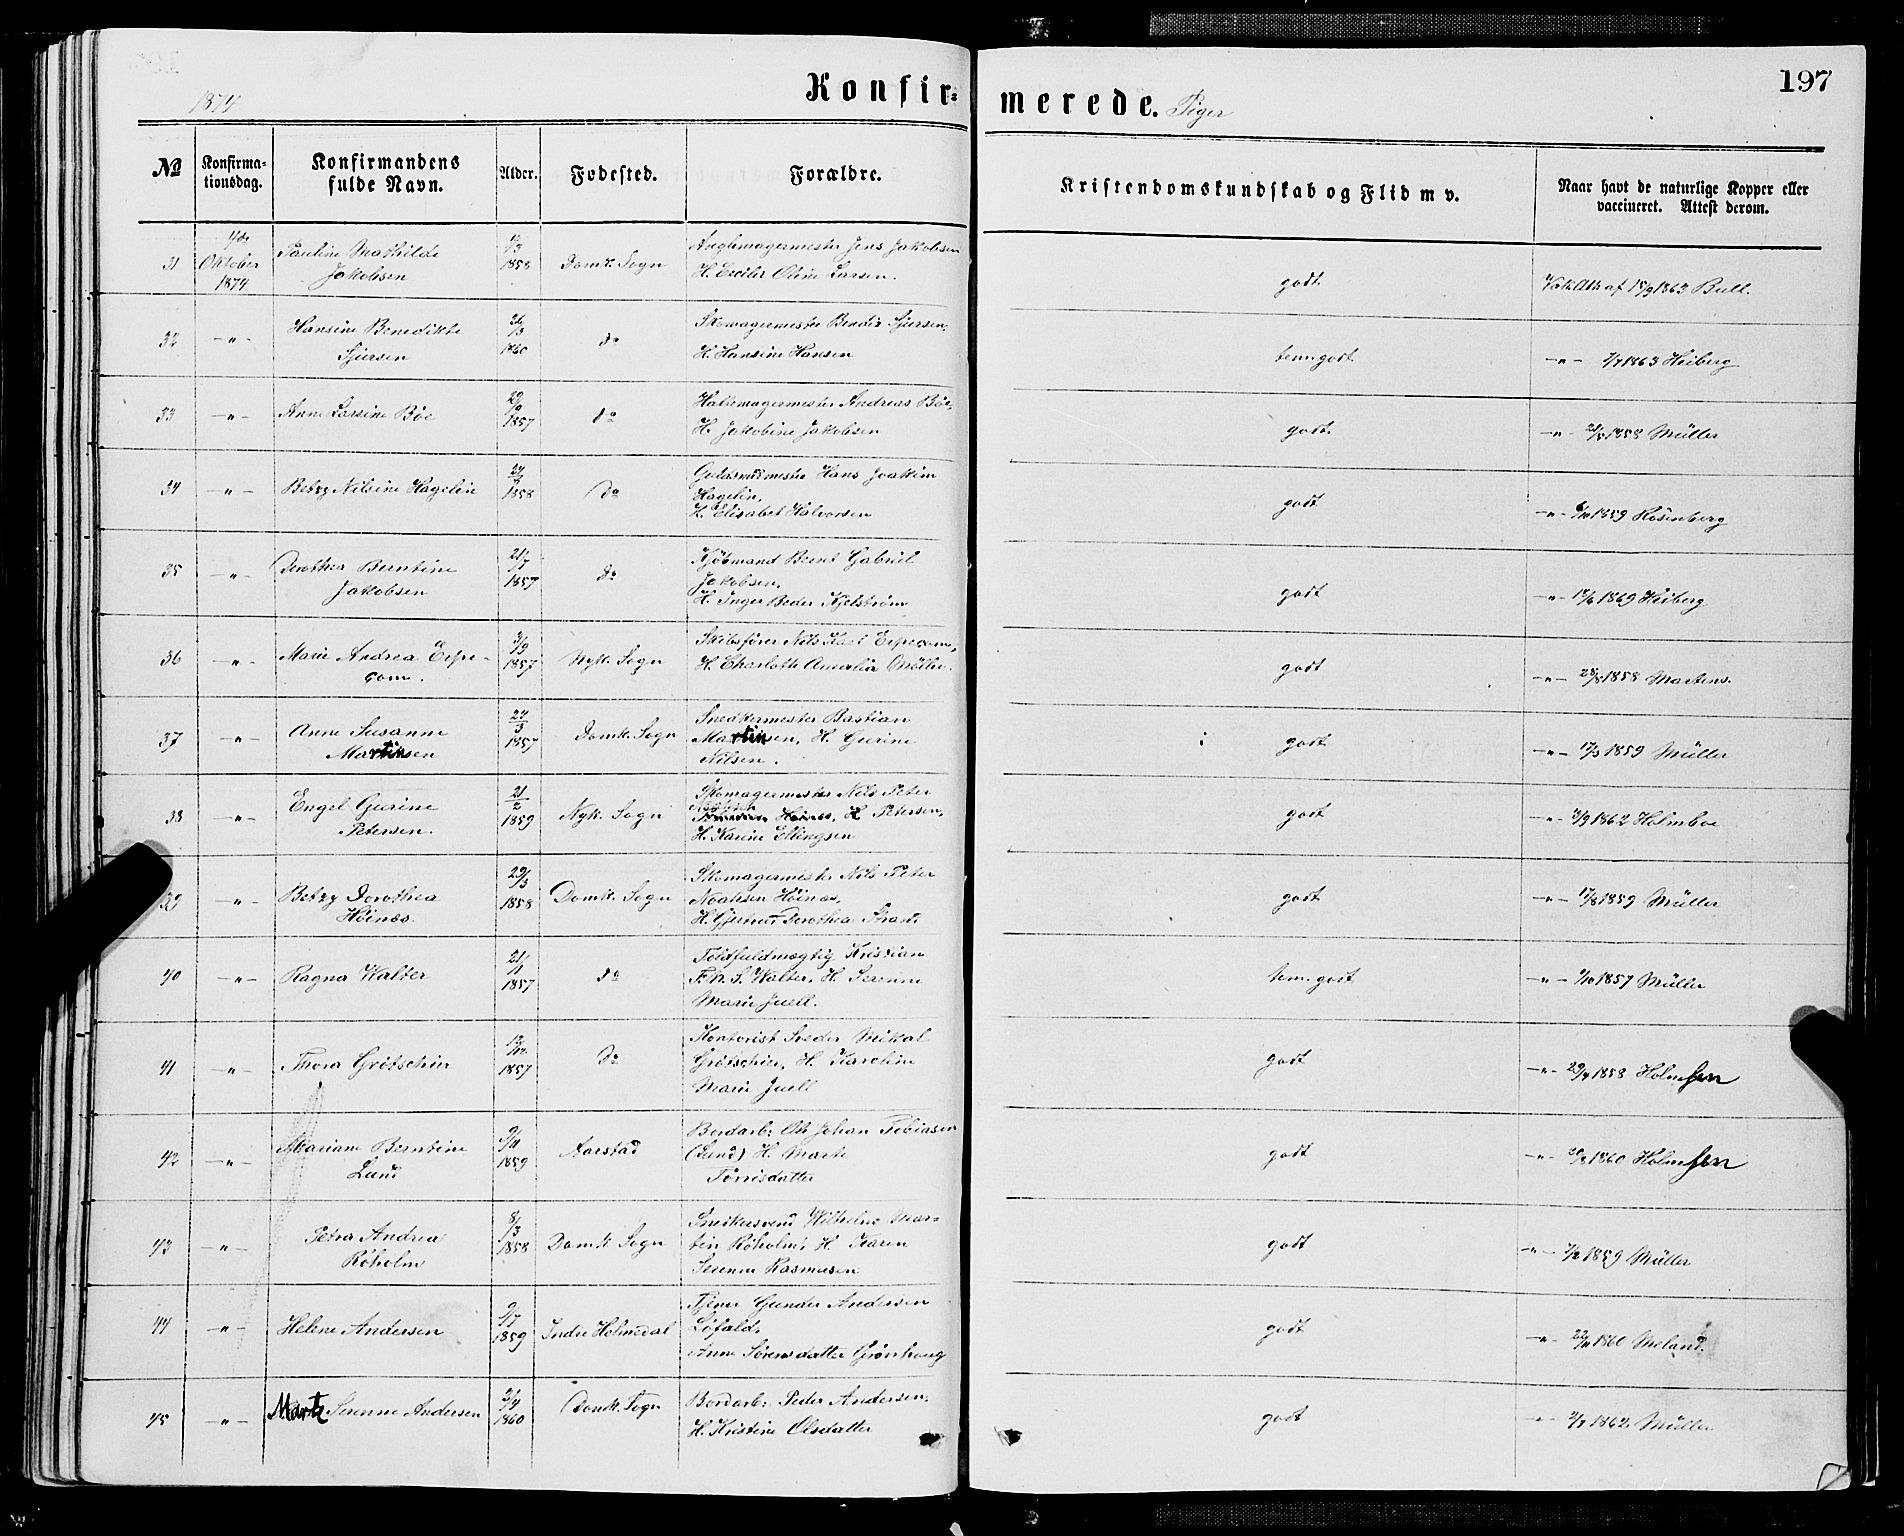 1874
Konfir-
merede. Piger
197
№
Konfirma-
tionsdag.
Konfirmandens
fulde Navn.
Alder.
Fødested.
Forældre.
Kristendomskundskab og Flid m v.
Naar havt de naturlige Kopper eller
vaccineret. Attest derom.
31 Oktober 1874 Pauline Mathilde Jakobsen 1858 Domk. Sogn
Jens Jakobsen
H. Oline Larsen.
godt 1863 Bull.
32 -"- Hansine Benedikte Sjursen 26/3 1860 do
Skomagermester Bendix Sjursen,
H. Hansine Hansen
tem. godt -"- 1863 Heiberg
33 -"- Anne Larsine Böe 1857 do
Andreas Böe,
H. Jakobine Jakobsen
godt -"- 1858 Müller
34 -"- Betzy Nilsine Hagelin 24/3 1858 do
Guldsmedmester Hans Joakim
Hagelin,
H. Elisabet Halvorsen
godt -"- 1859 Rosenberg
35 -"- Dorothea Berntine Jakobsen 21/7 1857 do
Kjöbmand Bernt Gabriel
Jakobsen,
H. Inger Beder Kjelström
godt -"- 1869 Heiberg
36 -"- Marie Andrea 3/9 1857 Nyk. Sogn
Skibsförer Nils Karl
H. Charlotte Amalia
godt -"- 28/8 1858 Martens.
37 -"- Anne Susanne Martinsen 24/3 1857 Domk. Sogn
Snedkermester Bastian
Martinsen, H. Gurine
Nilsen.
godt -"- 1859 Müller
38 -"- Engel Gurine Petersen. 21/2 1859 Nyk. Sogn
Skomagermester Nils Peter
Petersen,
H. Karine Ellingsen
godt -"- 1862 Holmboe
39 -"- Betzy Dorothea Höinæs. 29/3 1858 Domk. Sogn
Skomagermester Nils Peter
Noahsen Höinæs,
H. Gjertrud Dorothea Strand
godt -"- 1859 Müller
40 -"- Ragna Walter 21/1 1857 do
Toldfuldmægtig Kristian
F. N. S. Walter, H. Serenne
Marie Juell.
tem. godt -"- 1857 Müller
41 -"- Thora Grötschier 12/12 1857 do
Kontorist Sveder Mikal
Grötschier, H. Karoline
Marie Juell
godt -"- 29/4 1858 Holmsen
42 -"- Mariane Berntine Lund 9/11 1859 Aarstad
Bordarb: Ole Johan Tobiasen
(Lund) H. Marte
Torrisdatter
godt -"- 1860 Holmsen
43 -"- Petra Andrea Röholm 8/3 1858 Domk. Sogn
Snedkersvend Wilhelm Mar-
tin Röholm, H. Karen
Serenne Rasmusen
godt -"- 1859 Müller
44 -"- Helene Andersen 9/7 1859 Indre Holmedal
Tjener Gunder Andersen
Löfald,
Anne Sörensdatter Grönhoug
godt -"- 1860 Meland.
45 -"- Marta Serenne Andersen 1860 Domk. Sogn
Bordarb: Peder Andersen,
H. Kristine Olsdatter
godt -"- 1862 Müller